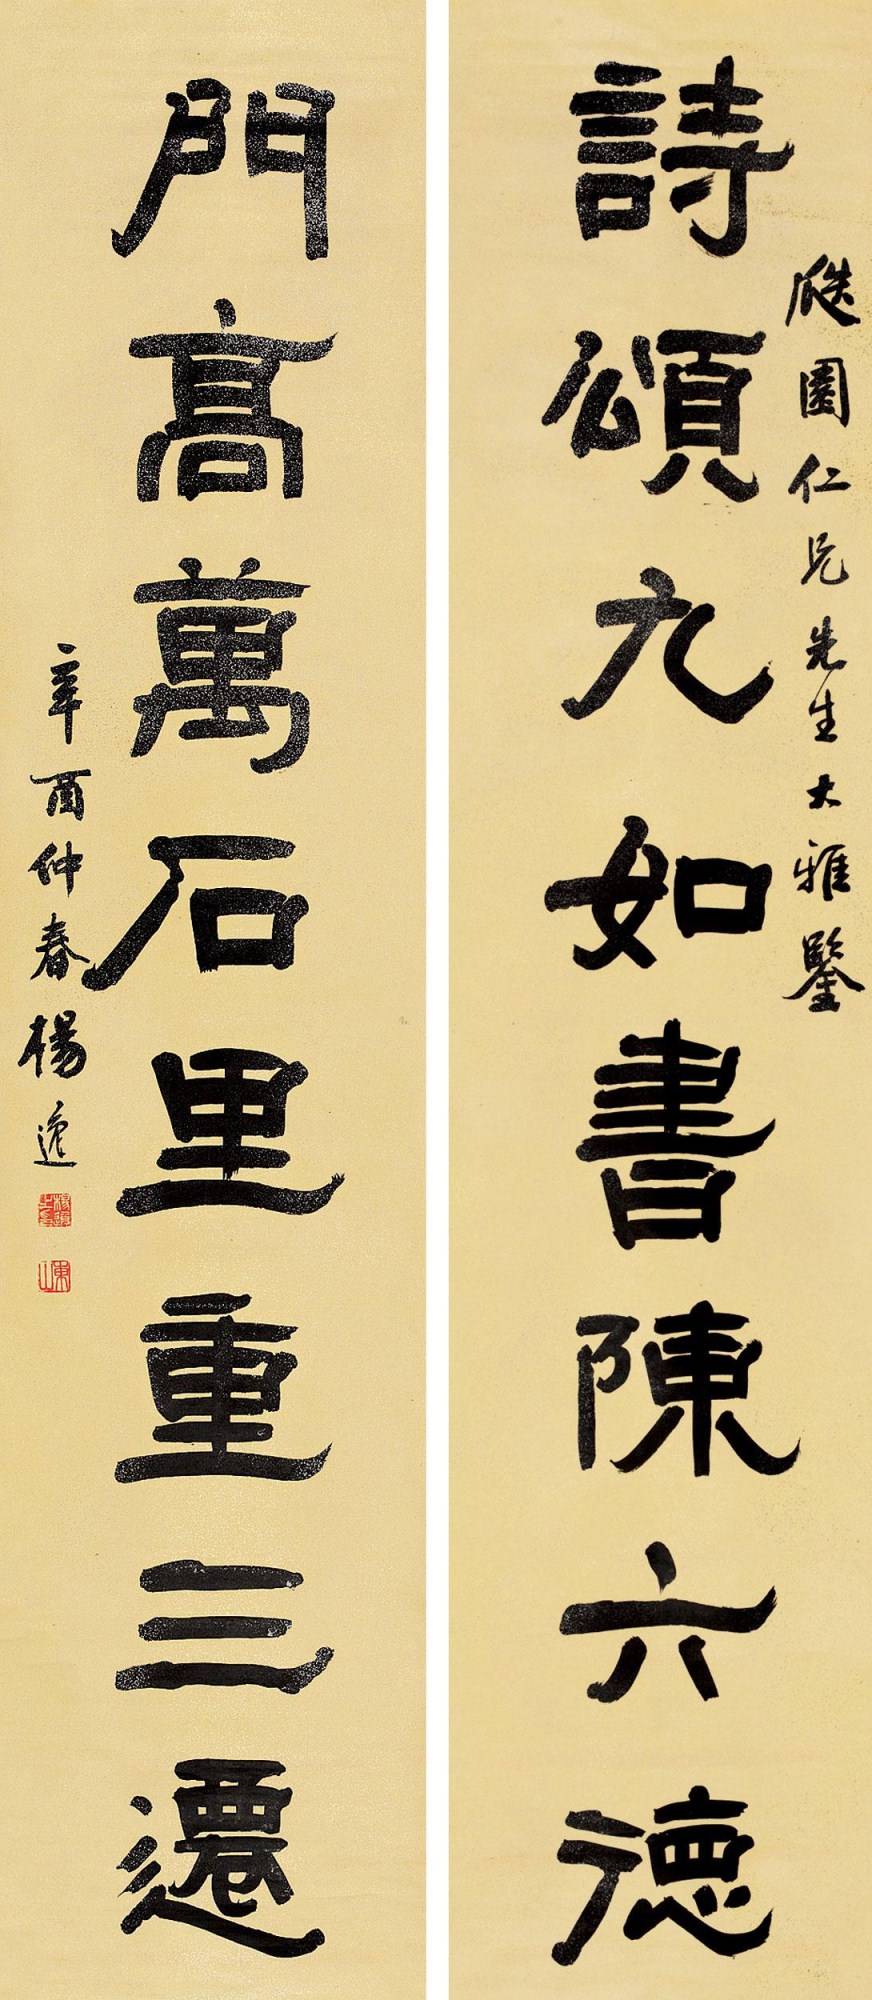 瓞園仁兄先生大雅鑒
詩頌九如書陳六德
門高萬石里重三遷
辛酉仲春楊逸
東山